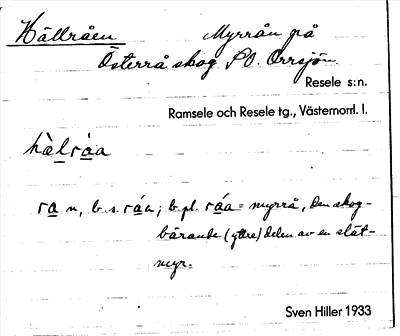 Hällråen Myrrån på
Österrå skog SO. Orrsjön
Resele s:n.
Ramsele och Resele tg., Västernorrl. l.
hὰlráa
ra n, b. s. ráa; b. pl. ráa = myrrå, den skog-
bärande (yttre) delen av en slåt-
myr.
Sven Hiller 1933